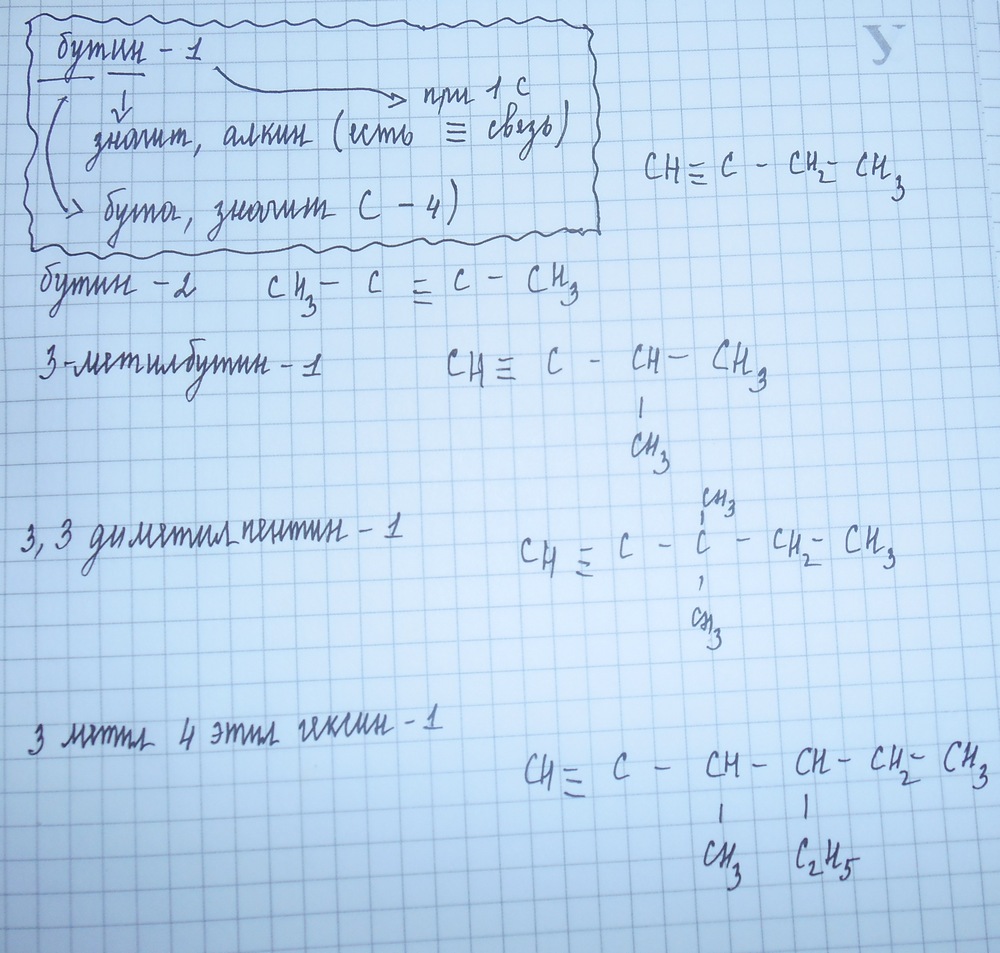 У
бутин - 1
при 1 С
значит, алкин (есть ≡ связь)
бута, значит С - 4)
CH ≡ C - CH₂ - CH₃
бутин - 2 CH₃ - C ≡ C - CH₃
3-метилбутин - 1 CH ≡ C - CH - CH₃
|
CH₃
CH₃
|
3, 3 диметилпентин - 1 CH ≡ C - C - CH₂ - CH₃
|
CH₃
3 метил 4 этил гексин - 1
CH ≡ C - CH - CH - CH₂ - CH₃
| |
CH₃ C₂H₅